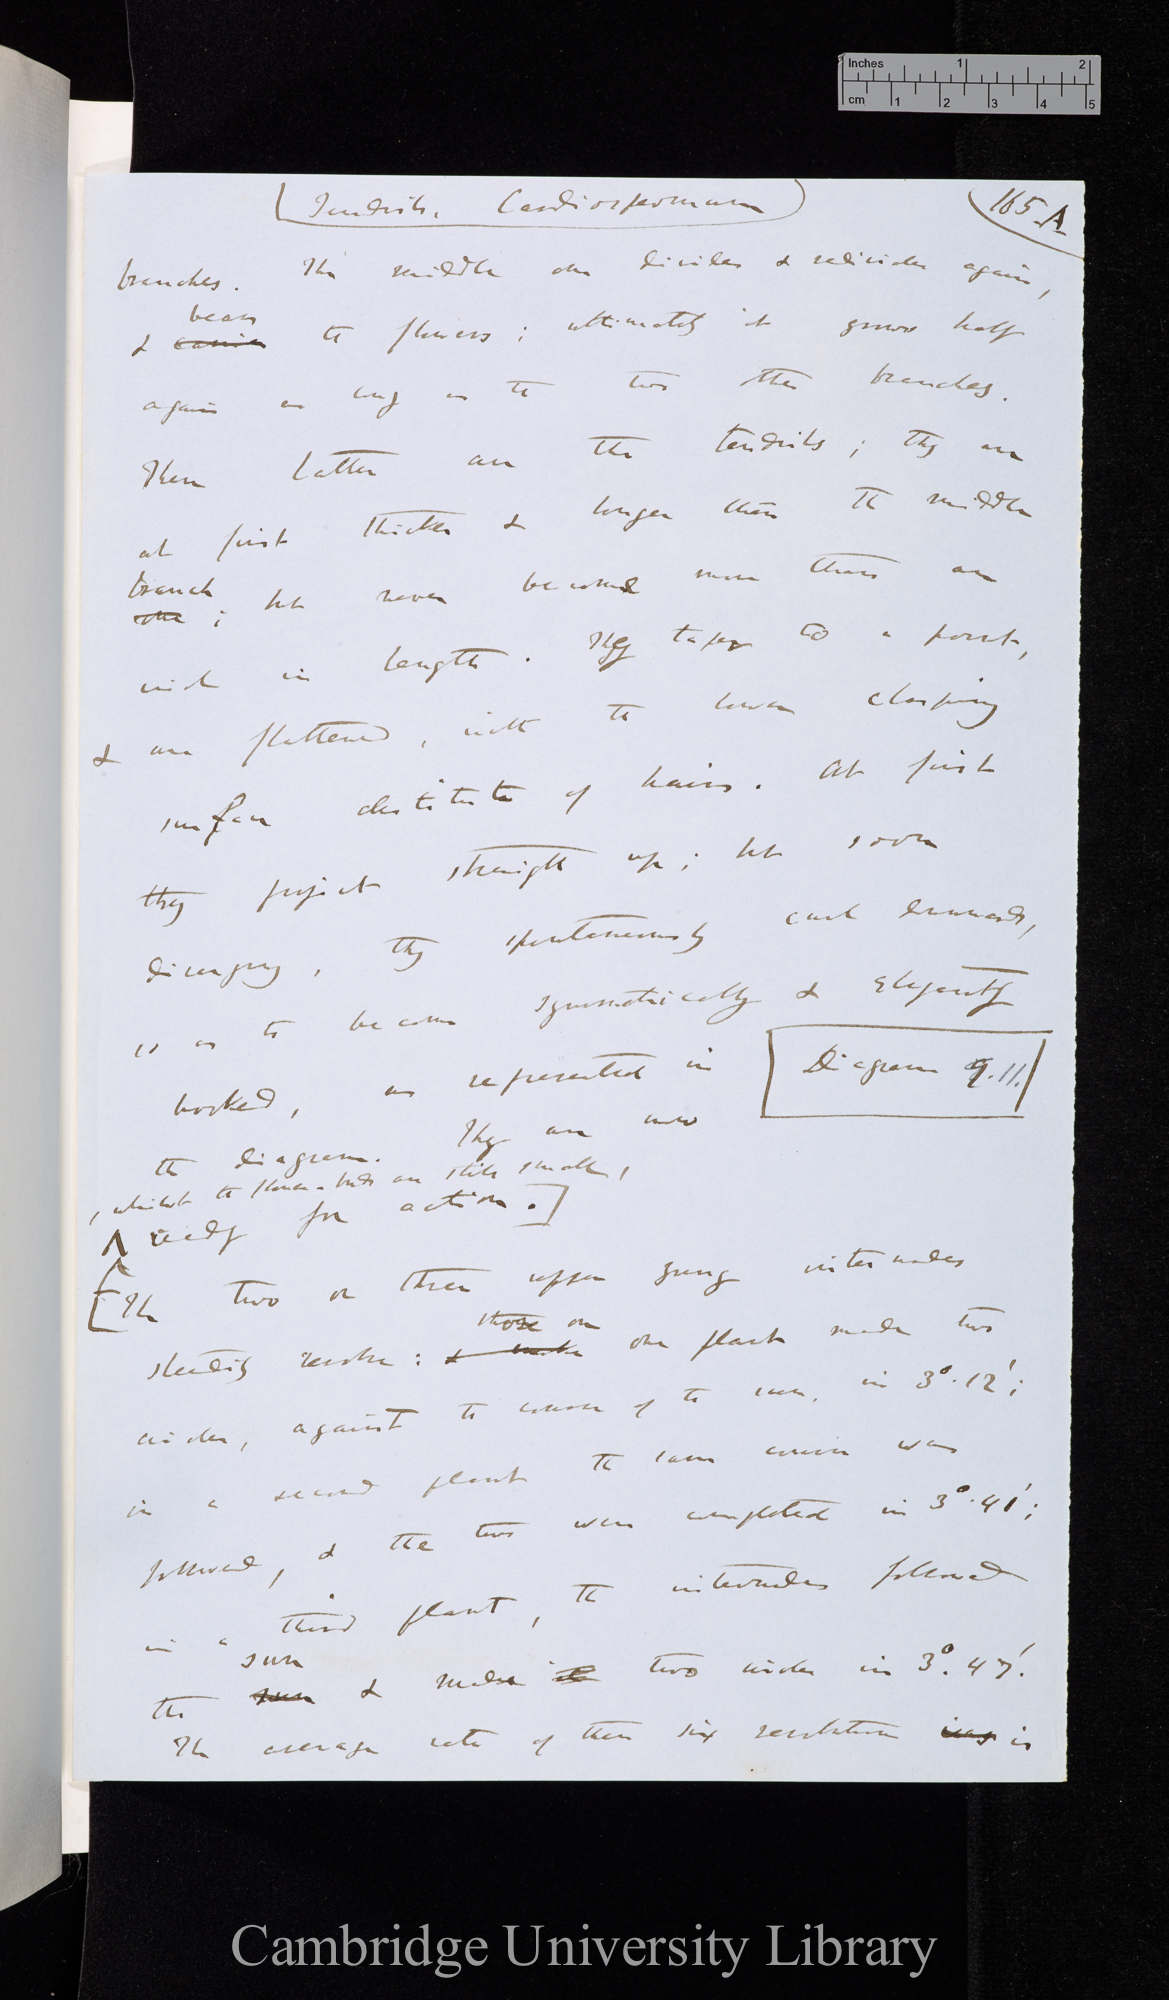 Inches 1 2
cm 1 2 3 4 5
Tendrils. Cardiospermum
165 A
branches. The middle one divides & redivides again,
bears
& carries the flowers; ultimately it grows half
again as long as the two other branches.
These latter are the tendrils; they are
at first thicker & longer than the middle
branch
one; but never become more than an
inch in length. They taper to a point,
& are flattened, with the lower clasping
surface destitute of hairs. At first
they project straight up; but soon
diverging, they spontaneously curl downwards,
so as to become symmetrically & elegantly
hooked, as represented in
Diagram 9. 11.
the diagram. They are now
, whilst the flower-buds are still small,
ready for action.]
[The two or three upper young internodes
those on
steadily revolve: & make one plant made two
circles, against the course of the sun, in 3°. 12';
in a second plant the same course was
followed, & the two were completed in 3°. 41';
in a third plant, the internodes followed
sun
the sun & made two circles in 3°. 47'.
The average rate of these six revolutions was is
Cambridge University Library